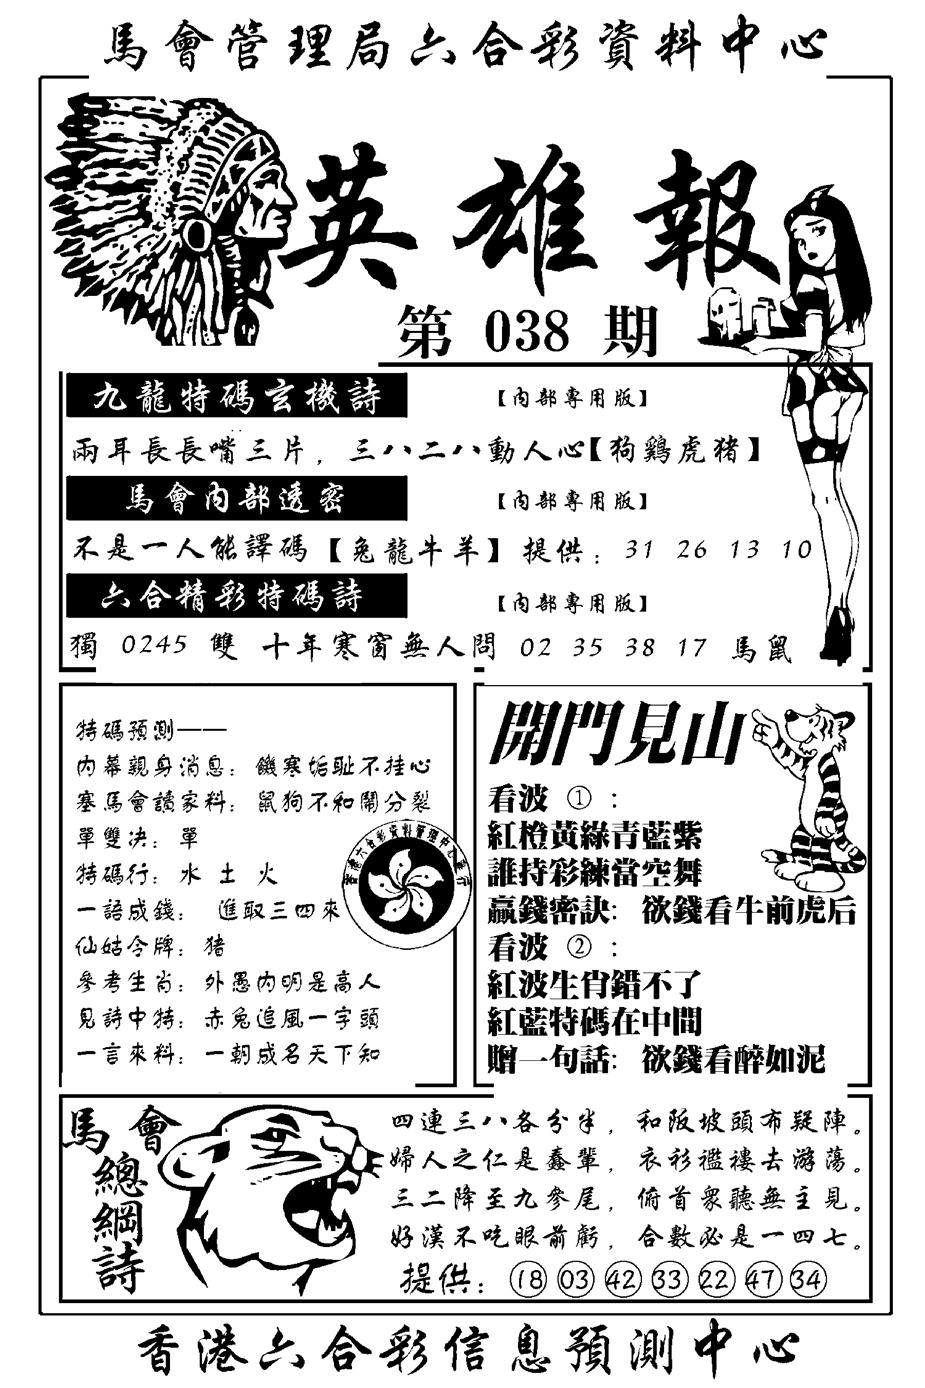 馬會管理局六合彩資料中心
英雄報
第 038 期
九龍特碼玄機詩 【內部專用版】
兩耳長長嘴三片，三八二八動人心【狗鷄虎猪】
馬會內部透密 【內部專用版】
不是一人能譯碼【兔龍牛羊】提供：31 26 13 10
六合精彩特碼詩 【內部專用版】
獨 0245 雙 十年寒窗無人問 02 35 38 17 馬鼠
特碼預測——
內幕親身消息：饑寒垢耻不挂心
塞馬會讀家料：鼠狗不和鬧分裂
單雙决：單
特碼行：水 土 火
一語成錢： 進取三四來
仙姑令牌：猪
參考生肖：外愚內明是高人
見詩中特：赤兔追風一字頭
一言來料：一朝成名天下知
開門見山
看波 ①：
紅橙黃綠青藍紫
誰持彩練當空舞
贏錢密訣：欲錢看牛前虎后
看波 ②：
紅波生肖錯不了
紅藍特碼在中間
贈一句話：欲錢看醉如泥
馬會
總綱詩
四連三八各分半，和阪坡頭布疑陣。
婦人之仁是蠢輩，衣衫襤褸去游蕩。
三二降至九參尾，俯首衆聽無主見。
好漢不吃眼前虧，合數必是一四七。
提供：⑱ ⓪③ ㊷ ㉝ ㉒ ㊼ ㉞
香港六合彩信息預測中心